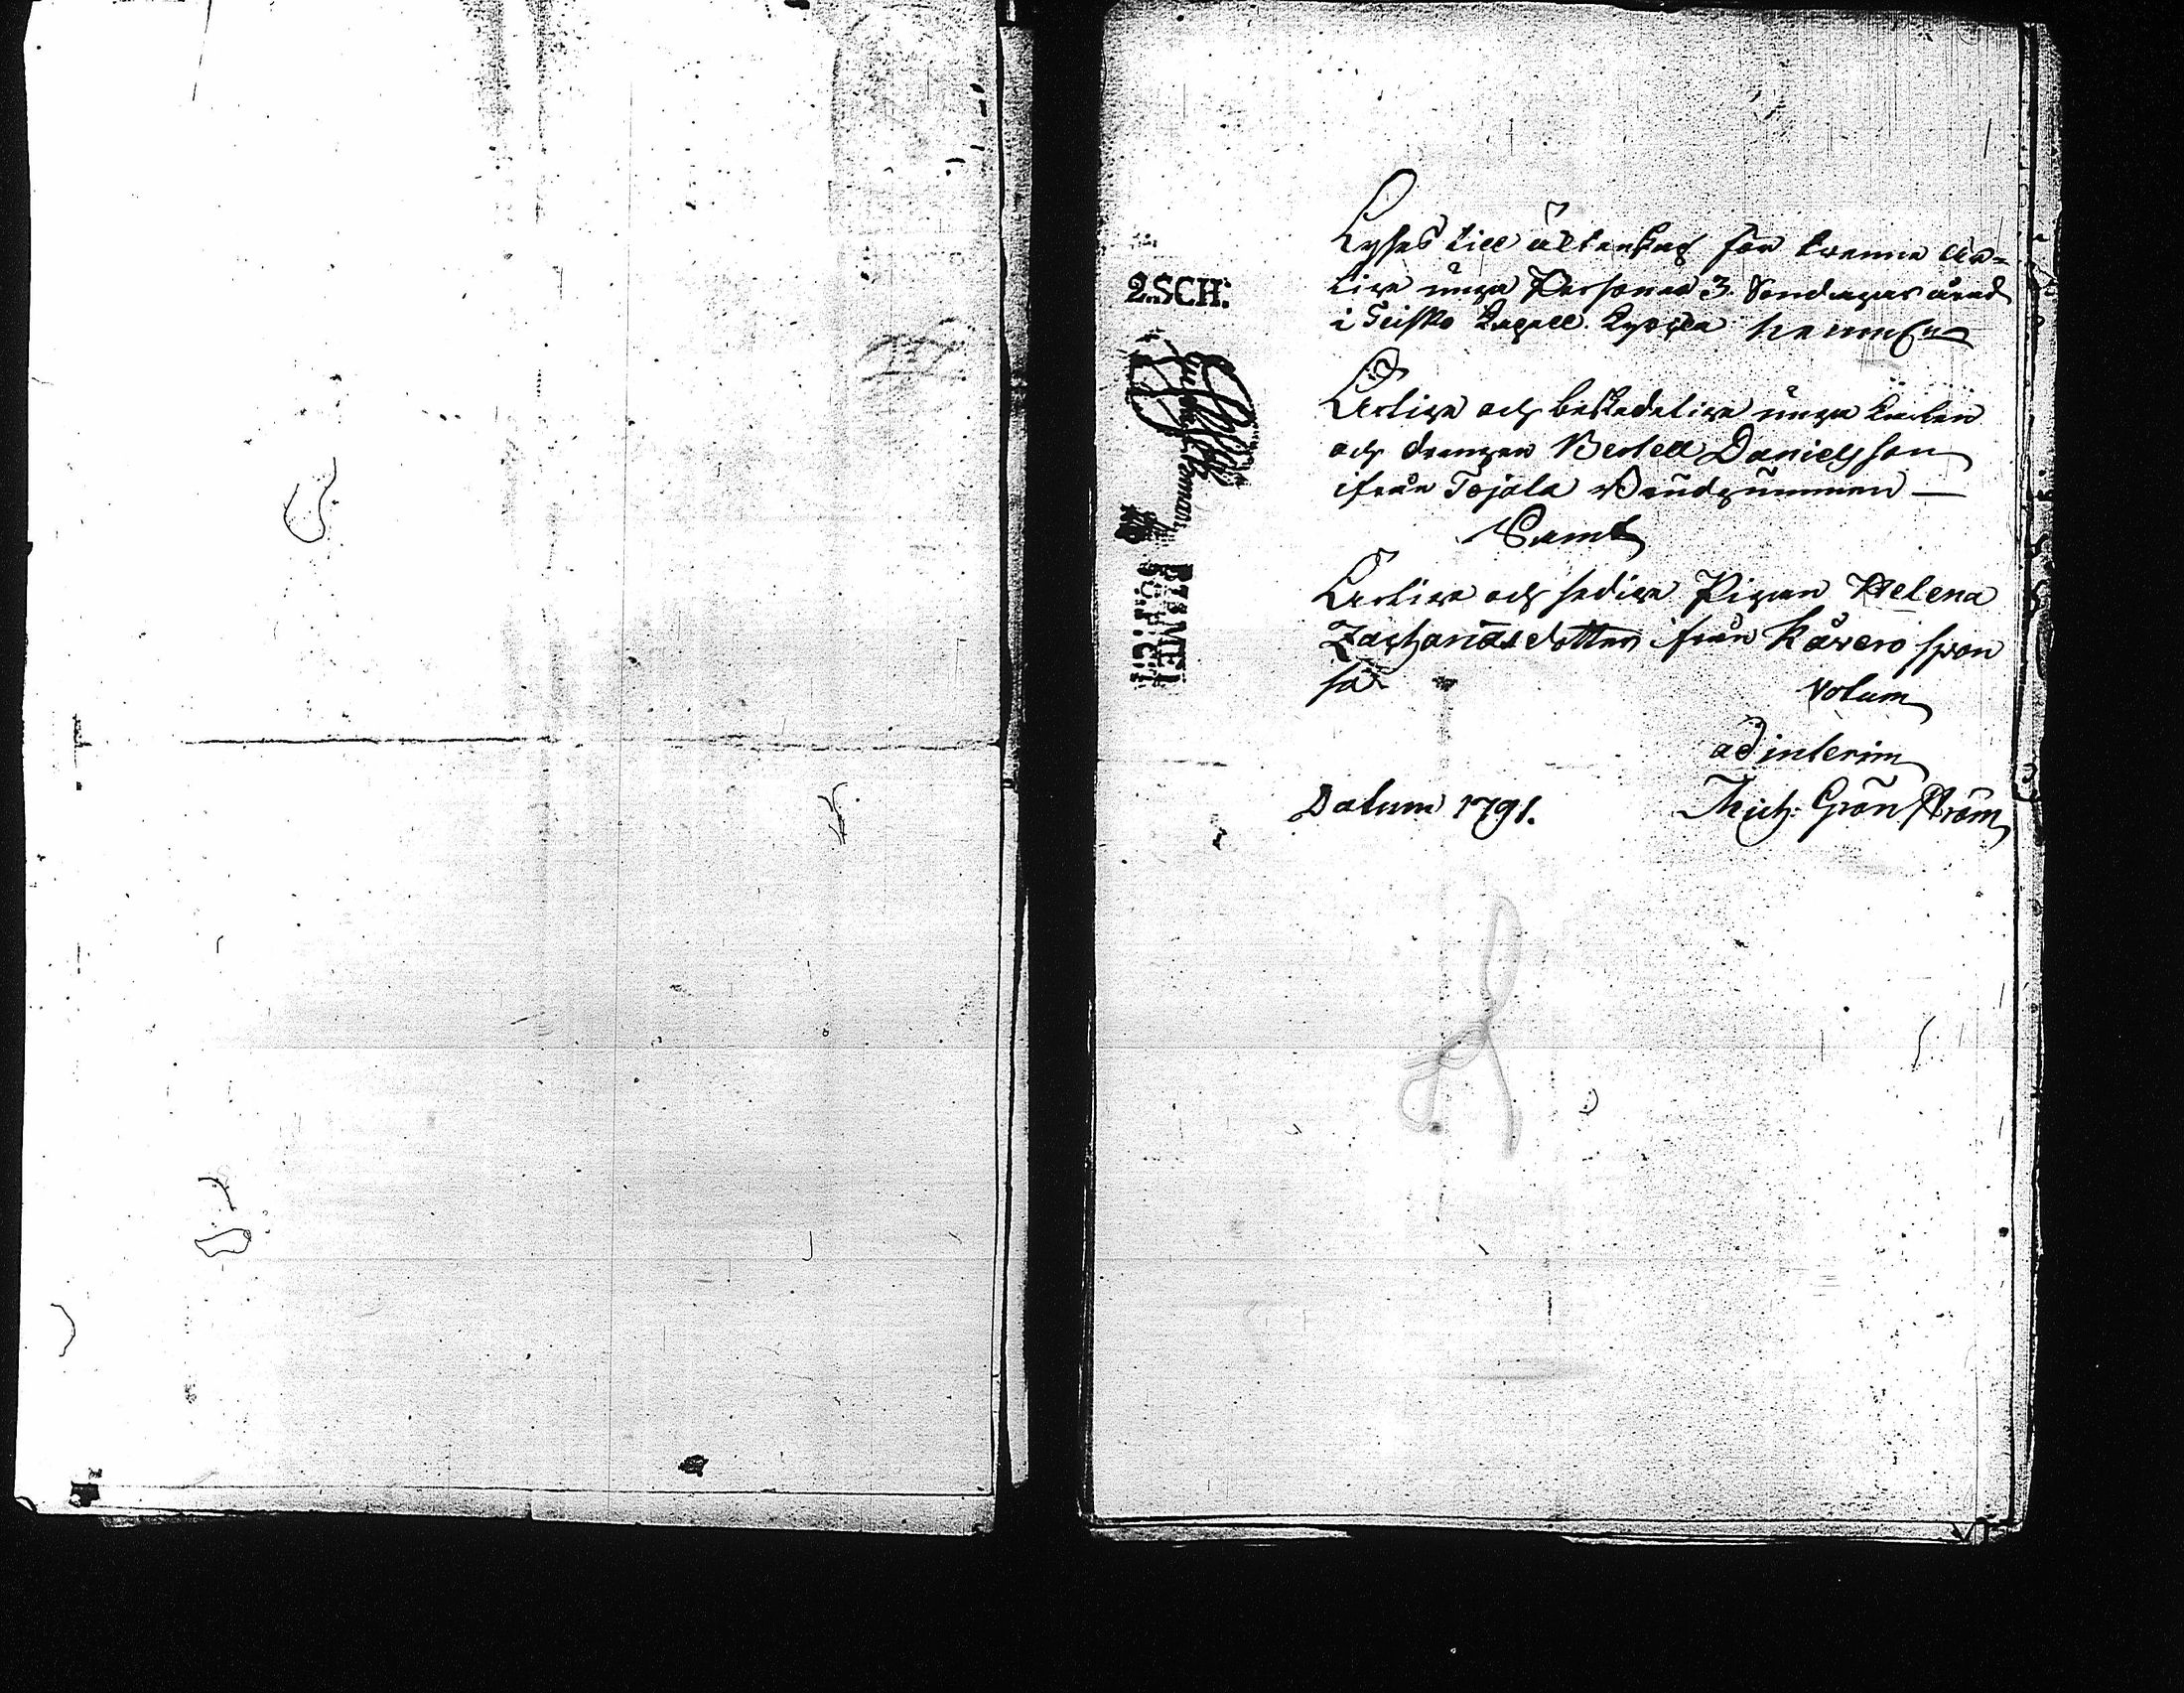 2.SCH:
Lyses till ächtenskap för twenne är=
liga unga Personer 3. Söndagar å rad
i Teisko Capell Kyrcka
Ärlige och beskedelige unga karlen
och drengen Bertell Danielsson
ifrån Tojala Brudgummen —
Samt
Ärliga och sediga Pigan Helena
Zachariædotter ifrån Kåvero spon
sa
Votum
ad interim
Datum 1791. Mich: Grönström